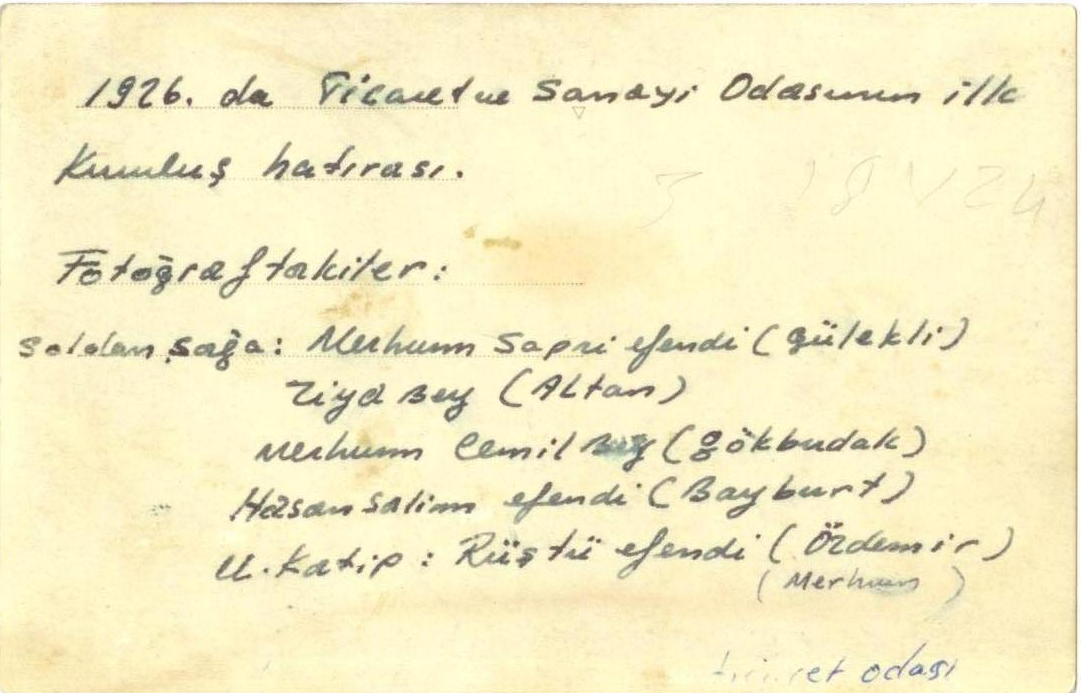 1926. da Ticaret ve Sanayi Odasının ilk
Kuruluş hatırası.
Fotoğraftakiler:
Soldan sağa: Merhum Sapri efendi (Gülekli)
Ziya Bey (Altan)
Merhum Cemil Bey (Gökbudak)
Hasan Salim efendi (Bayburt)
U. Katip: Rüştü efendi (Özdemir)
(Merhum)
ticaret odası